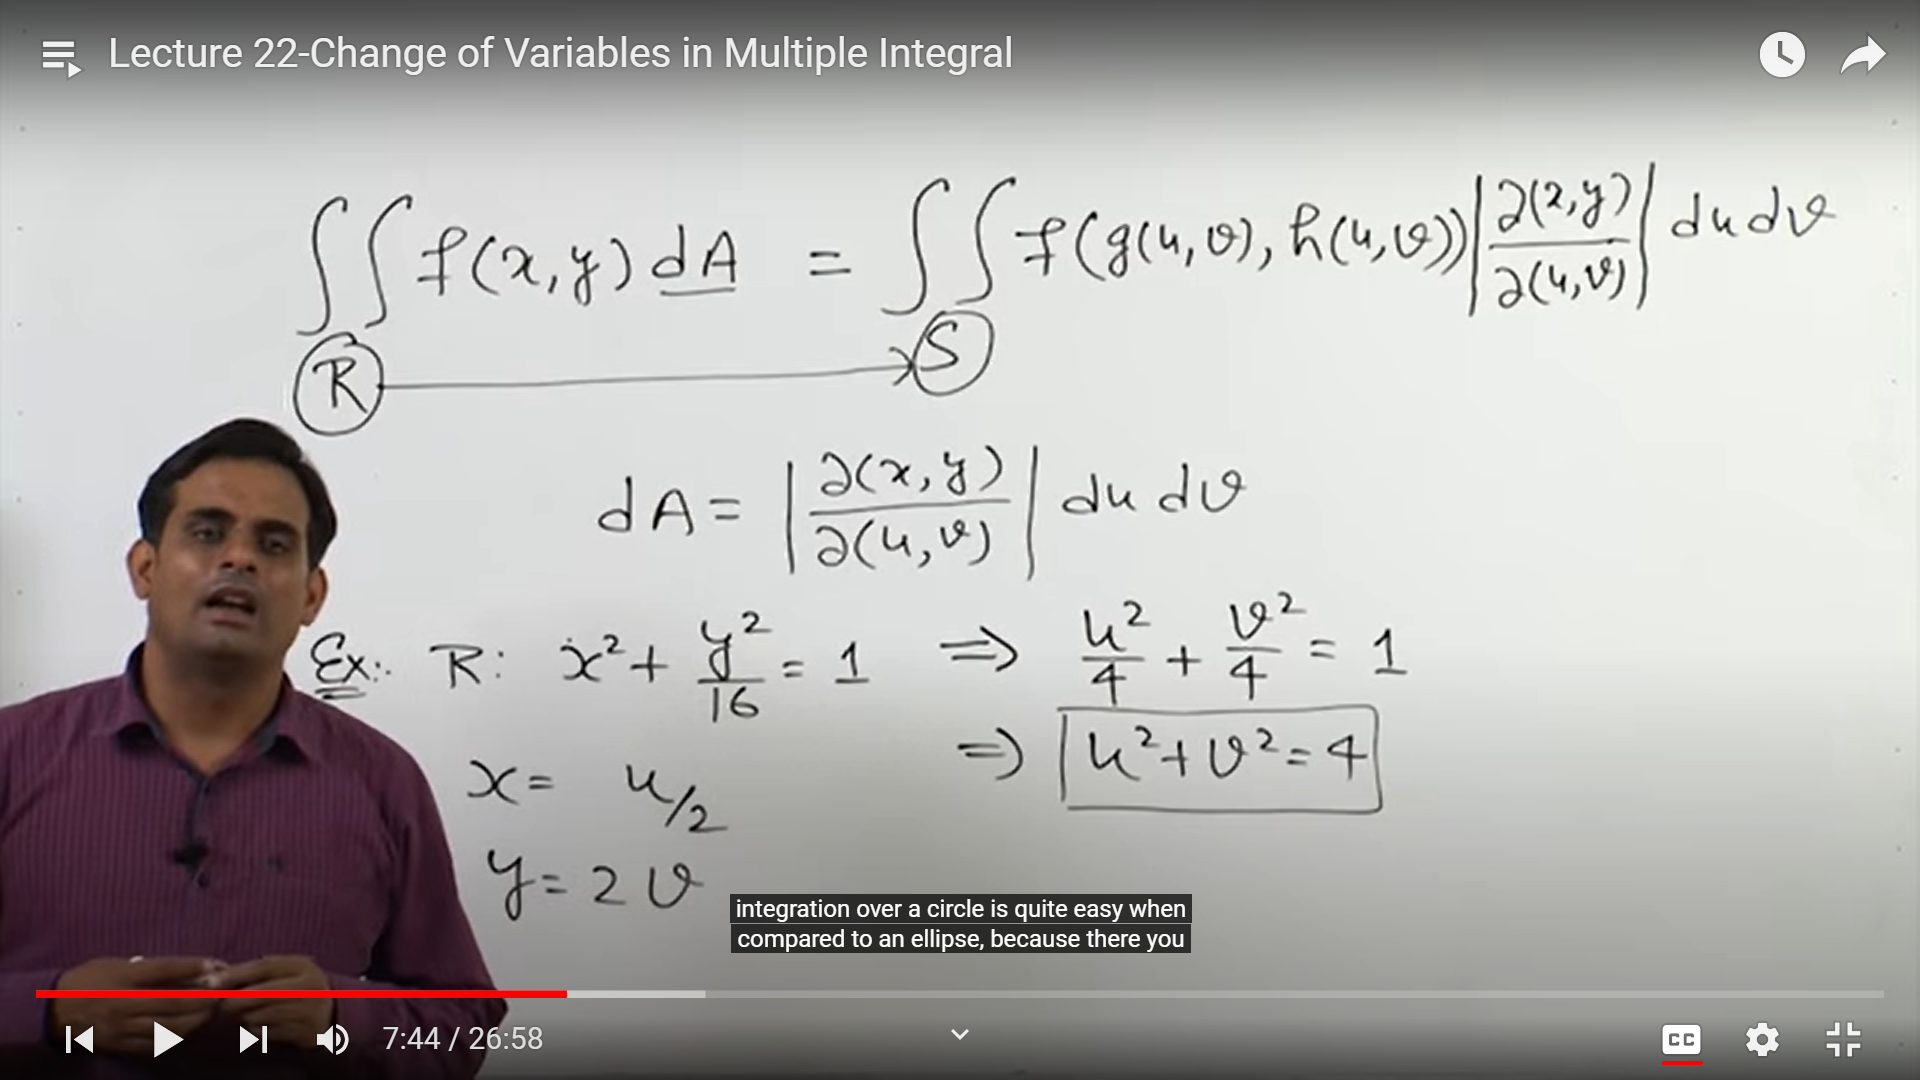 Lecture 22-Change of Variables in Multiple Integral
∬_R f(x,y) dA = ∬_S f(g(u,v), h(u,v)) |∂(x,y)/∂(u,v)| du dv
dA = |∂(x,y)/∂(u,v)| du dv
Ex:. R: x² + y²/16 = 1 ⇒ u²/4 + v²/4 = 1
x = u/2 ⇒ u² + v² = 4
y = 2v
integration over a circle is quite easy when
compared to an ellipse, because there you
7:44 / 26:58 CC